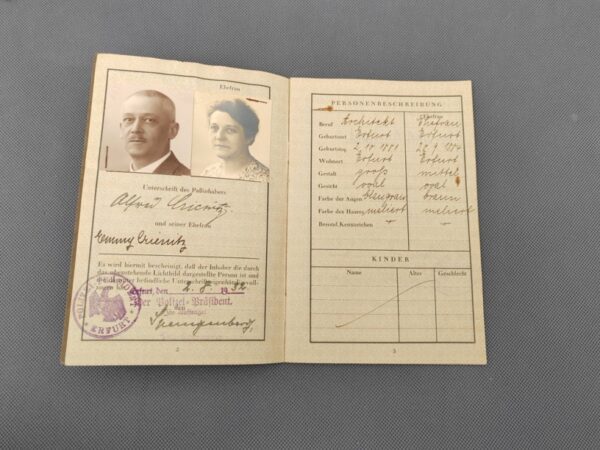 Ehefrau
Unterschrift des Paßinhabers
Alfred Criewitz
und seiner Ehefrau
Emmy Criewitz
Es wird hiermit bescheinigt, daß der Inhaber die durch
das obenstehende Lichtbild dargestellte Person ist und
die darunter befindliche Unterschrift eigenhändig voll-
zogen hat.
Erfurt, den 2. 8. 1932
Der Polizei-Präsident.
Spangenberg
ERFURT
2
PERSONENBESCHREIBUNG
Ehefrau
Beruf Architekt Ehefrau
Geburtsort Erfurt Erfurt
Geburtstag 2. 10. 1881
Wohnort Erfurt Erfurt
Gestalt groß mittel
Gesicht oval oval
Farbe der Augen blaugrau braun
Farbe des Haares meliert meliert
Besond. Kennzeichen — —
KINDER
Name Alter Geschlecht
3